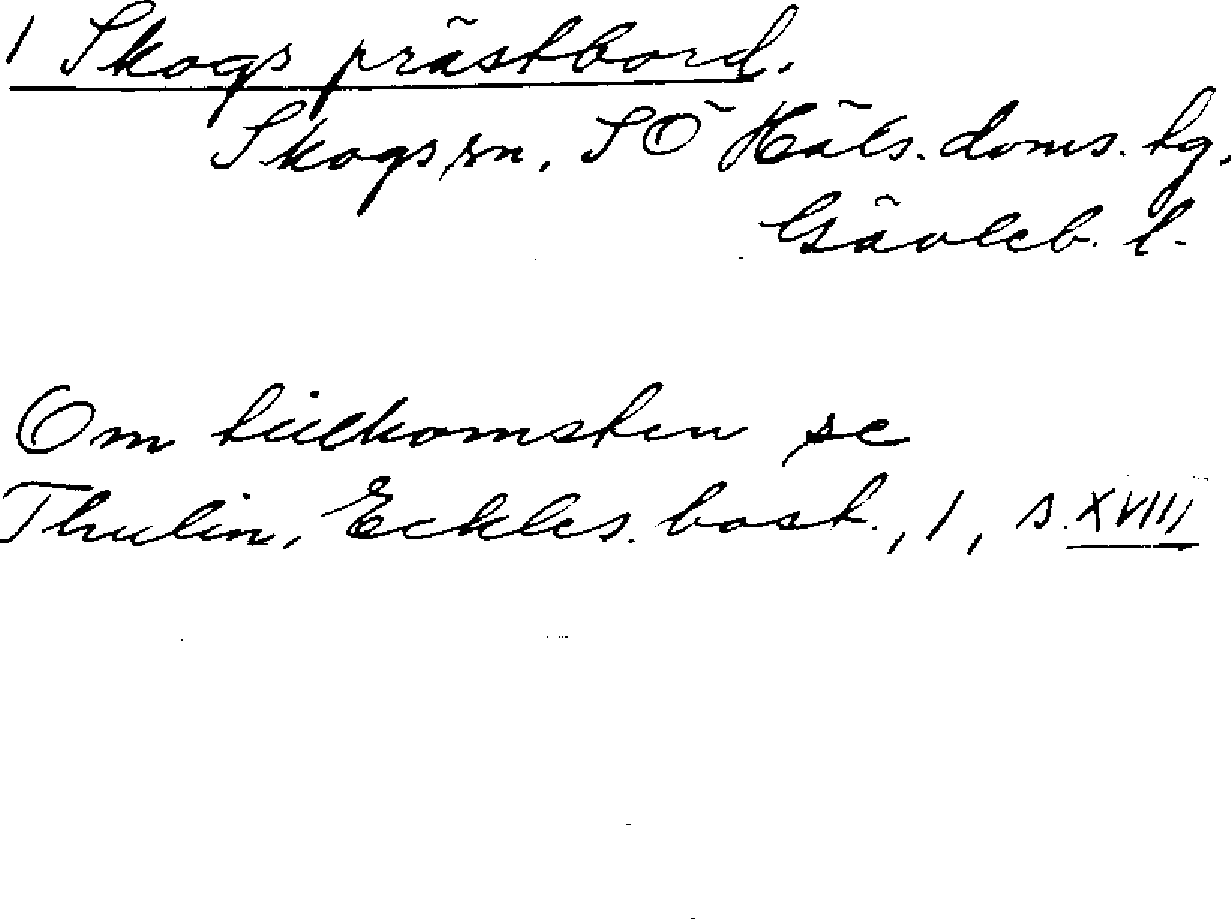 1 Skogs prästbord.
Skogs sn, SÖ Häls. doms. tg,
Gävleb. l.
Om tillkomsten se
Thulin, Eckles. bost., 1, s. XVIII